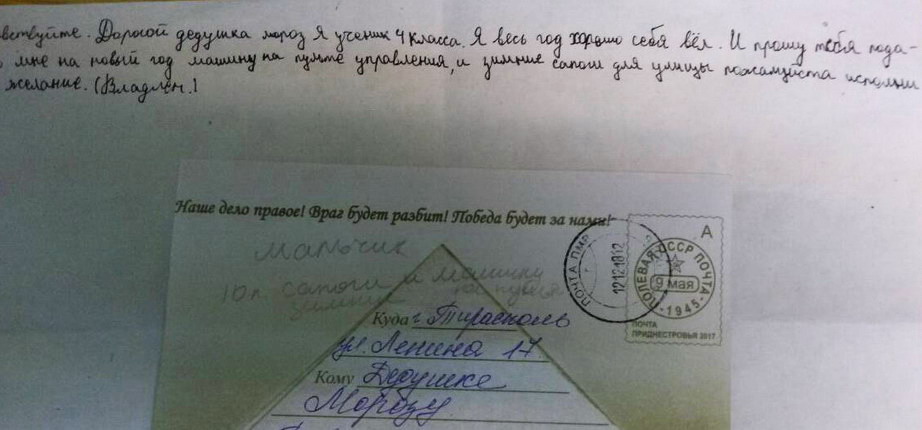 вствуйте. Дорогой дедушка мороз Я ученик 4 класса. Я весь год хорошо себя вёл. И прошу тебя пода-
мне на новый год машину на пумте управления, и зимние сапоги для улицы пожамуйста исполни
желание. (Владлен.)
Наше дело правое! Враг будет разбит! Победа будет за нами!
мальчик
10л. сапоги и машину
зимние на пульте
Куда г. Тирасполь
ул. Ленина 17
Кому Дедушке
Морозу
ПОЧТА ПМР
12.12.18 12
А
ПОЛЕВАЯ СССР ПОЧТА
9 мая
-1945-
ПОЧТА
ПРИДНЕСТРОВЬЯ 2017